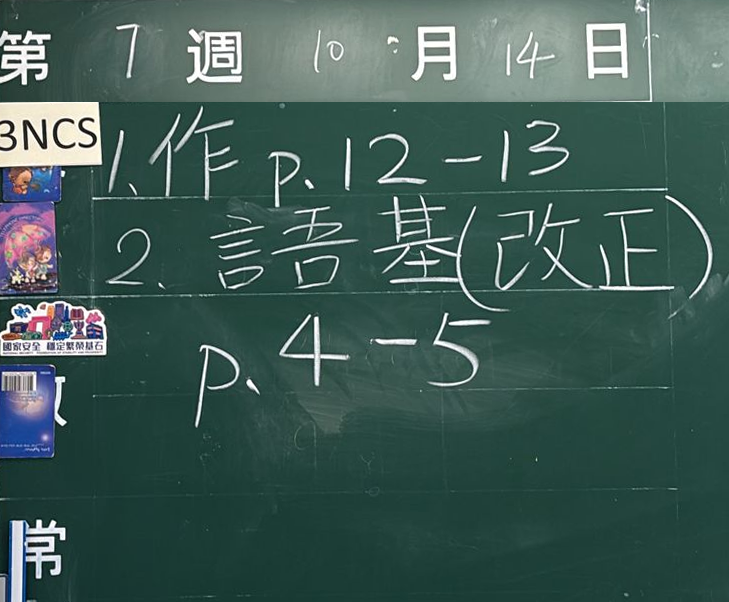 第 7 週 10 月 14 日
3NCS
1. 作 p. 12-13
2. 語基(改正)
p. 4-5
國家安全 穩定繁榮基石
常